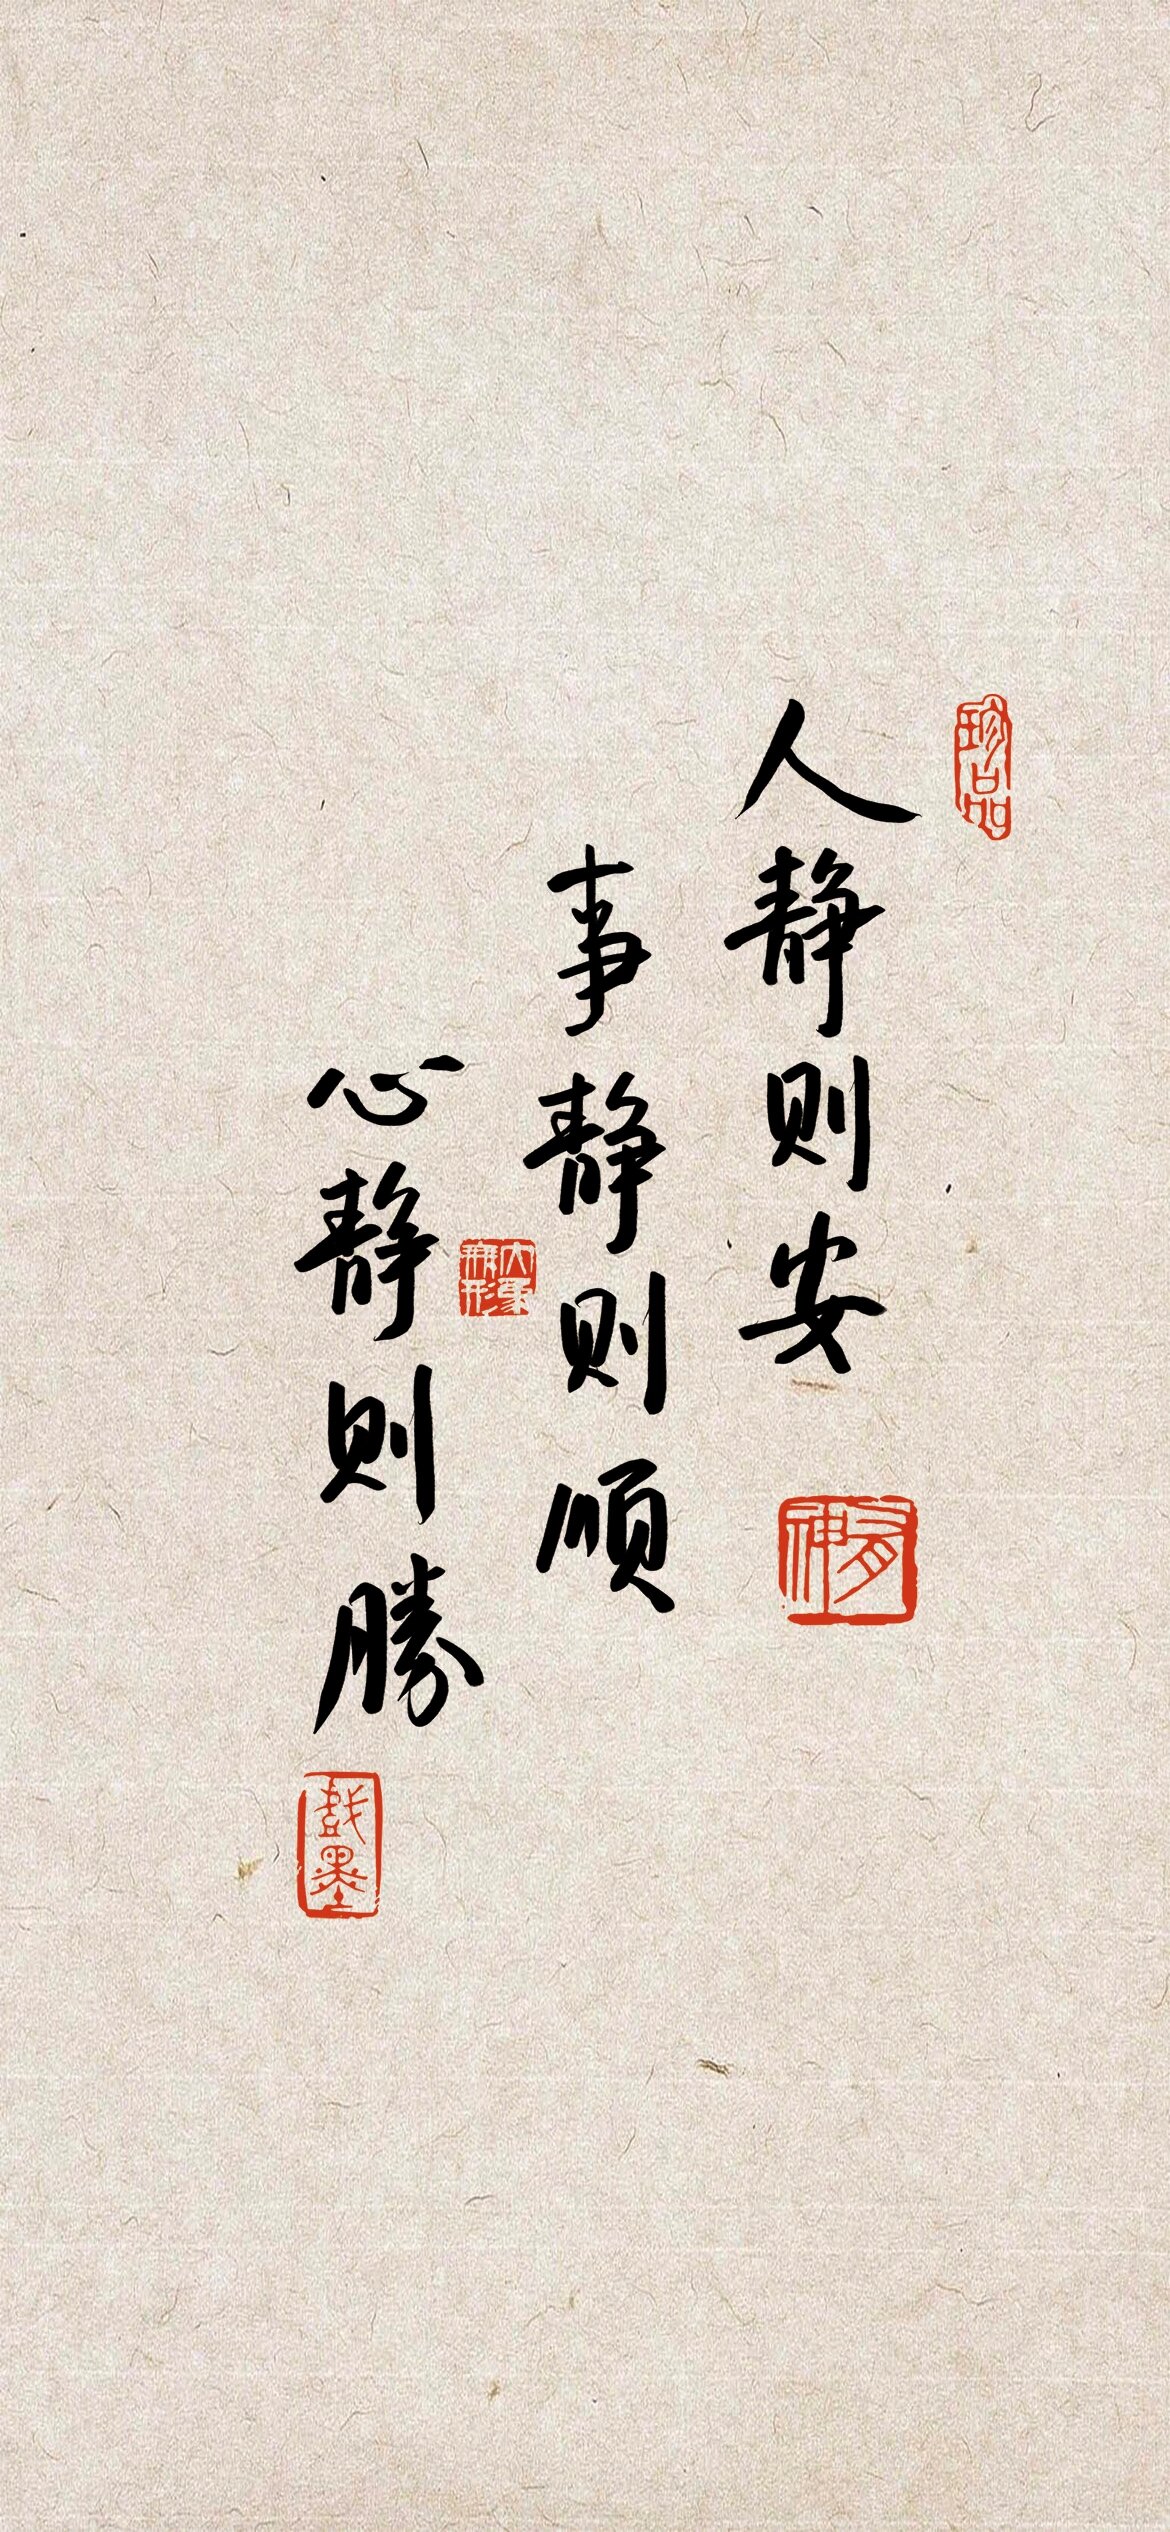 珍品
人静则安
有神
事静则顺
大象無形
心静则勝
戲墨